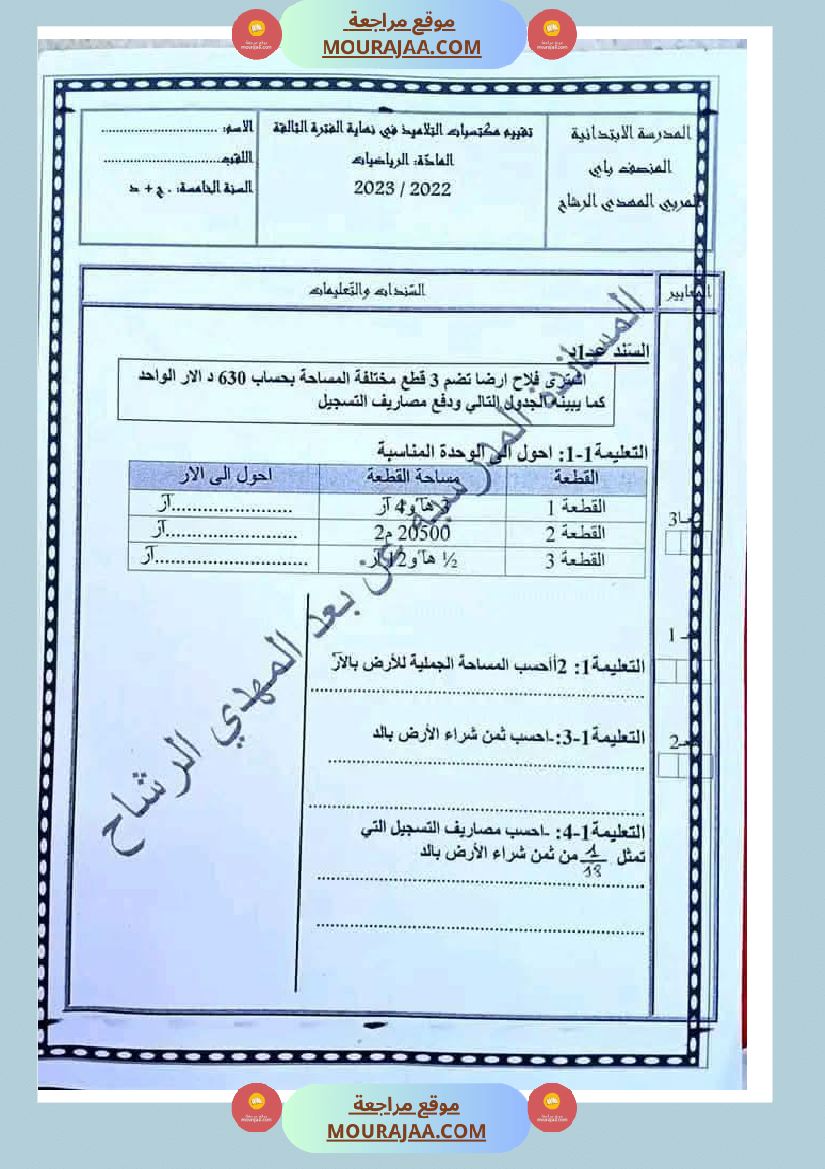 موقع مراجعة
MOURAJAA.COM
المدرسة الابتدائية
المنصف باي
المربي المهدي الرشاح
تقييم مكتسبات التلاميذ في نهاية الفترة الثالثة
المادّة: الرياضيات
2022 / 2023
الاسم: ................................
اللقب.................................
السنة الخامسة: . ج + د
المعايير
السّندات والتّعليمات
السّند عـ1ـد
اشترى فلاح ارضا تضم 3 قطع مختلفة المساحة بحساب 630 د الار الواحد
كما يبينه الجدول التالي ودفع مصاريف التسجيل
التعليمة1-1: احول الى الوحدة المناسبة
القطعة مساحة القطعة احول الى الار
القطعة 1 3 هآ و4 آر ........................آر
القطعة 2 20500 م2 ..........................آر
القطعة 3 ½ هآ و12 آر ..............................آر
معـ3
معـ 1
التعليمة1: 2أأحسب المساحة الجملية للأرض بالآر
................................................................
التعليمة1-3:-احسب ثمن شراء الأرض بالد
معـ2
................................................................
................................................................
التعليمة1-4: -احسب مصاريف التسجيل التي
تمثل 1/18 من ثمن شراء الأرض بالد
................................................................
................................................................
المساندة المدرسية عن بعد المهدي الرشاح
موقع مراجعة
MOURAJAA.COM